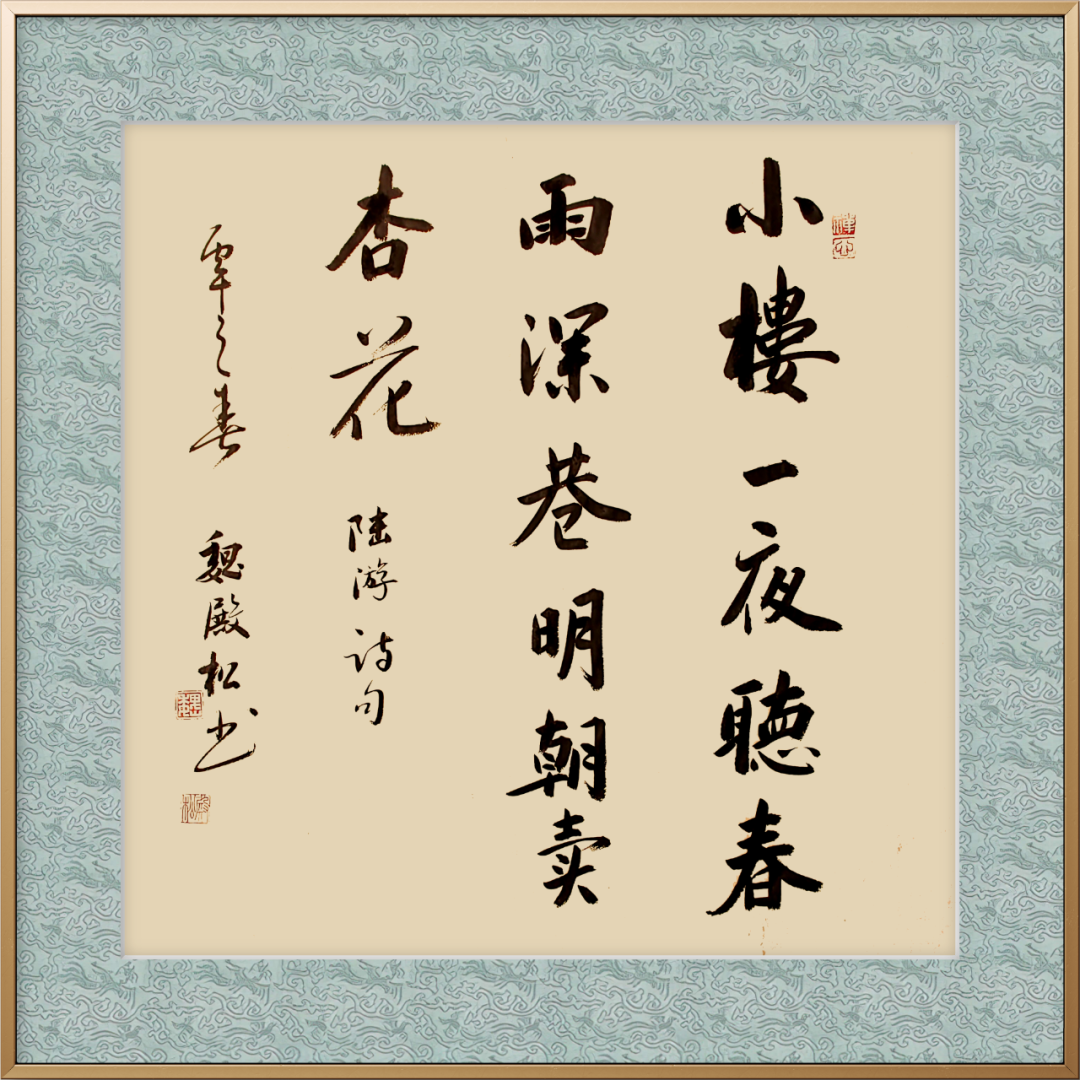 小樓一夜聽春
雨深巷明朝卖
杏花 陸游诗句
之春 魏殿松书